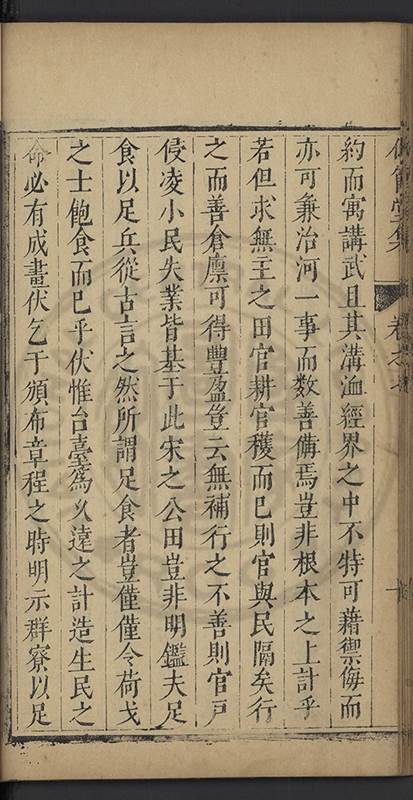 集 卷之七
約而寓講武且其溝洫經界之中不特可藉禦侮而
亦可兼治河一事而數善備焉豈非根本之上計乎
若但求無主之田官耕官穫而已則官與民隔矣行
之而善倉廪可得豐盈豈云無補行之不善則官戶
侵凌小民失業皆基于此宋之公田豈非明鑑夫足
食以足兵從古言之然所謂足食者豈僅僅令荷戈
之士飽食而已乎伏惟台臺爲久遠之計造生民之
命必有成畫伏乞于頒布章程之時明示群寮以足